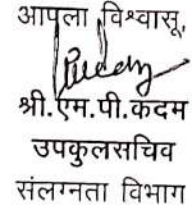 आपला विश्वासू,
श्री.एम.पी.कदम
उपकुलसचिव
संलग्नता विभाग